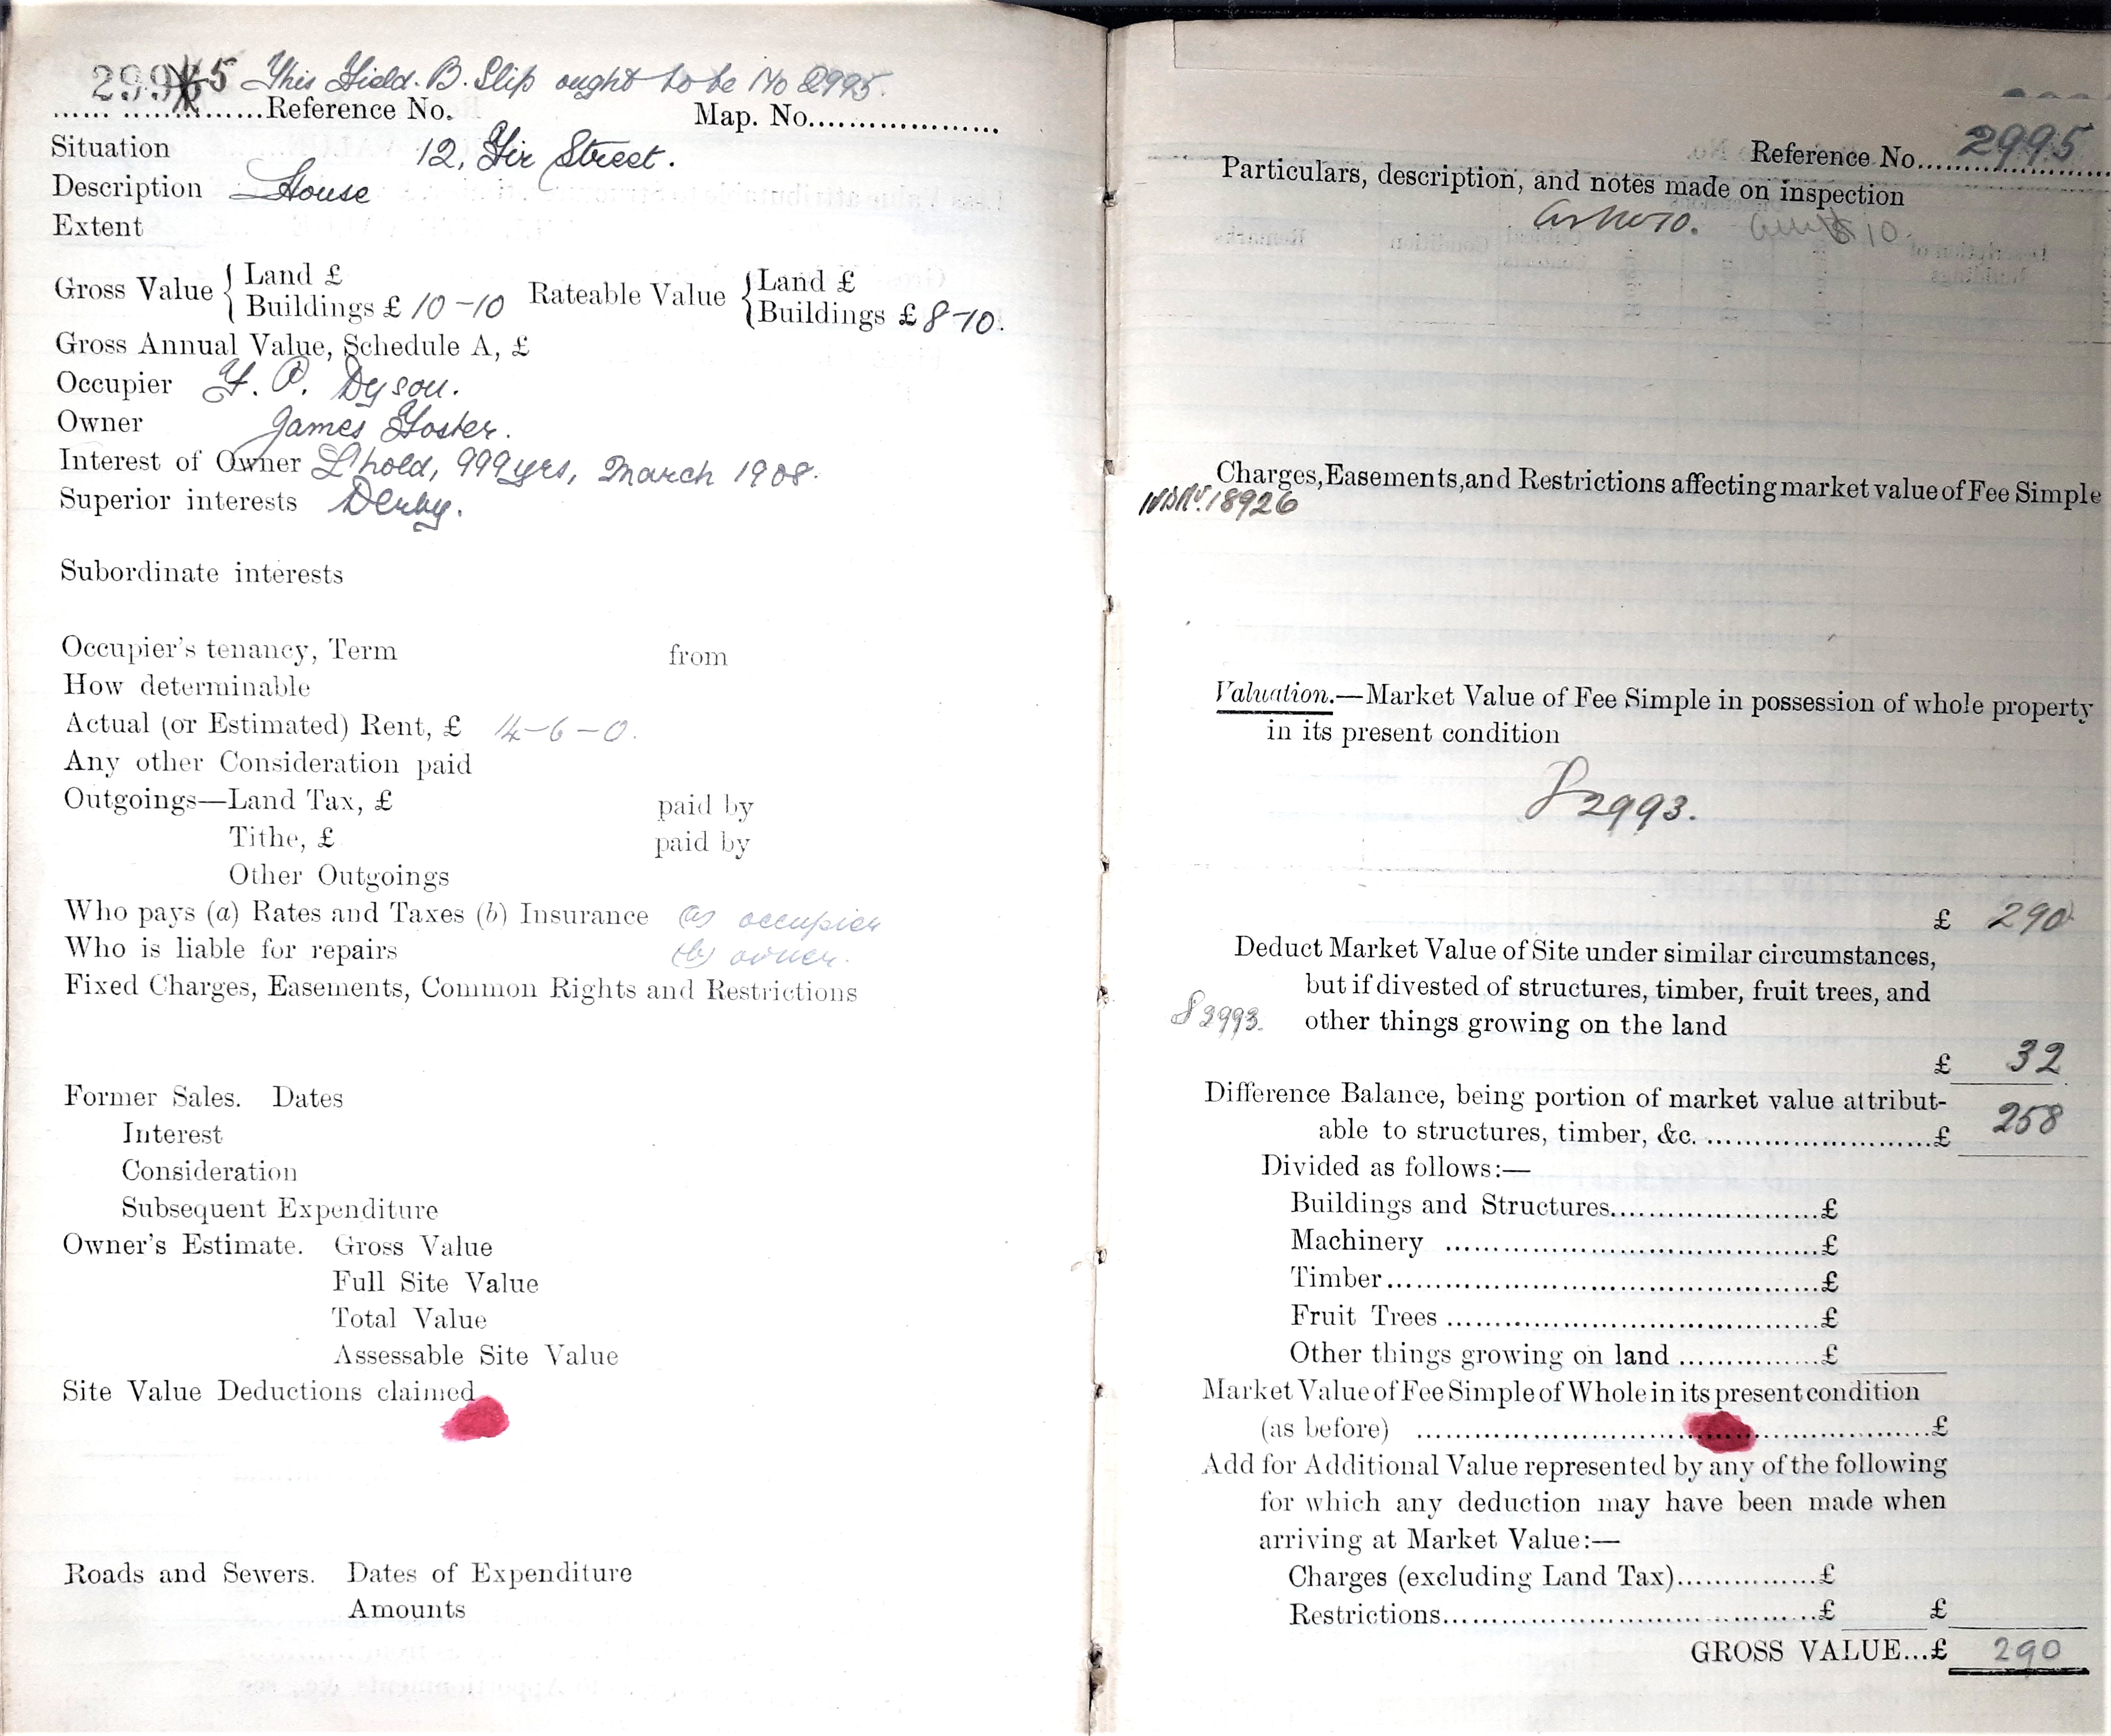 2995 This Field. B. Slip ought to be No 2995.
...................Reference No. Map. No....................
Situation 12, Fir Street.
Description House
Extent
Gross Value { Land £
Buildings £ 10-10
Rateable Value { Land £
Buildings £ 8-10.
Gross Annual Value, Schedule A, £
Occupier F. P. Dyson.
Owner James Foster.
Interest of Owner L'hold, 999 yrs, March 1908.
Superior interests Derby.
Subordinate interests
Occupier's tenancy, Term from
How determinable
Actual (or Estimated) Rent, £ 14-6-0.
Any other Consideration paid
Outgoings—Land Tax, £ paid by
Tithe, £ paid by
Other Outgoings
Who pays (a) Rates and Taxes (b) Insurance (a) occupier
Who is liable for repairs (b) owner.
Fixed Charges, Easements, Common Rights and Restrictions
Former Sales. Dates
Interest
Consideration
Subsequent Expenditure
Owner's Estimate. Gross Value
Full Site Value
Total Value
Assessable Site Value
Site Value Deductions claimed
Roads and Sewers. Dates of Expenditure
Amounts
Reference No. 2995
Particulars, description, and notes made on inspection
as No 10.
Charges, Easements, and Restrictions affecting market value of Fee Simple
18926
Valuation.—Market Value of Fee Simple in possession of whole property
in its present condition
2993.
£ 290
Deduct Market Value of Site under similar circumstances,
but if divested of structures, timber, fruit trees, and
2993. other things growing on the land
£ 32
Difference Balance, being portion of market value attribut-
able to structures, timber, &c. ........................£ 258
Divided as follows:—
Buildings and Structures......................£
Machinery ......................................£
Timber............................................£
Fruit Trees ......................................£
Other things growing on land ...............£
Market Value of Fee Simple of Whole in its present condition
(as before) ......................................................£
Add for Additional Value represented by any of the following
for which any deduction may have been made when
arriving at Market Value:—
Charges (excluding Land Tax)...............£
Restrictions.......................................£ £
GROSS VALUE...£ 290